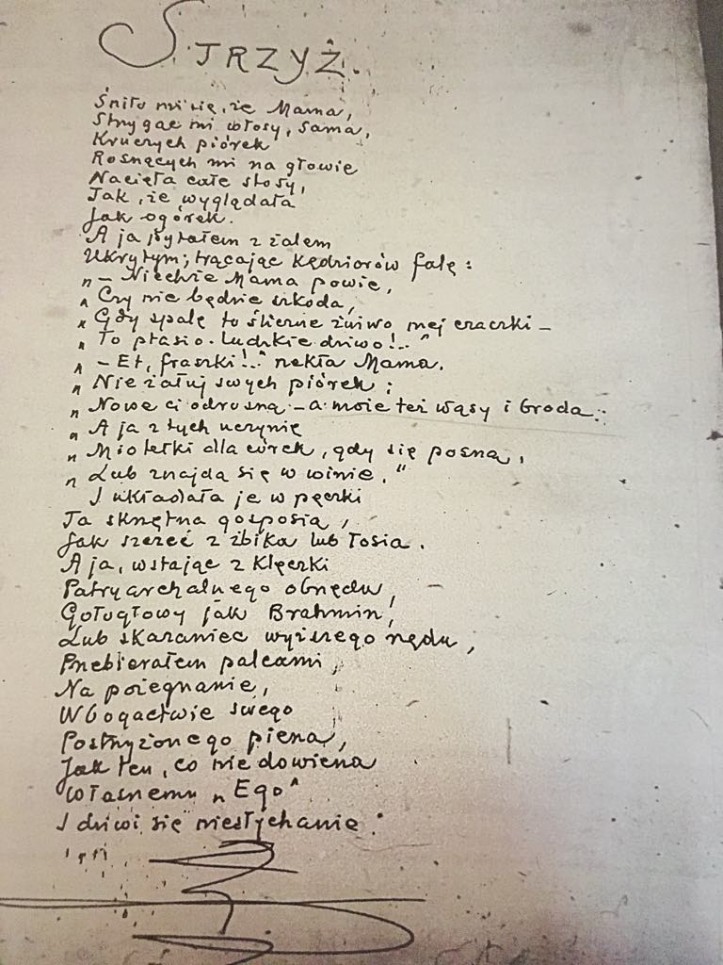 STRZYŻ.
Śniło mi się, że Mama,
Strzygąc mi włosy, sama,
Kruczych piórek
Rosnących mi na głowie
Nacięła całe stosy,
Jak, że wyglądała
Jak ogórek.
A ja pytałem z żalem
Ukrytym; trącając kędziorów falę:
„ – Niechże Mama powie,
„ Czy nie będzie szkoda,
„ Gdy spalę to śliczne żniwo mej czaczki –
„ To ptasio-ludzkie dziwo!.."
„ – Et, fraszki!.." rzekła Mama.
„ Nie żałuj swych piórek;
„ Nowe ci odrosną – a moie też wąsy i broda.:
„ A ja z tych uczynię
„ Miotełki dla córek, gdy się posną,
„ Lub znajdą się w winie."
I układała je w pęczki
Ta skrzętna gosposia,
Jak szczeć z żbika lub łosia.
A ja, wstając z klęczki
Patryarchalnego obrzędu,
Gołogłowy jak Brahmin,
Lub skazaniec wyższego rzędu,
Przebierałem palcami,
Na pożegnanie,
W bogactwie swego
Postrzyżonego pierza,
Jak ten, co nie dowierza
Własnemu „Ego"
I dziwi się niesłychanie.